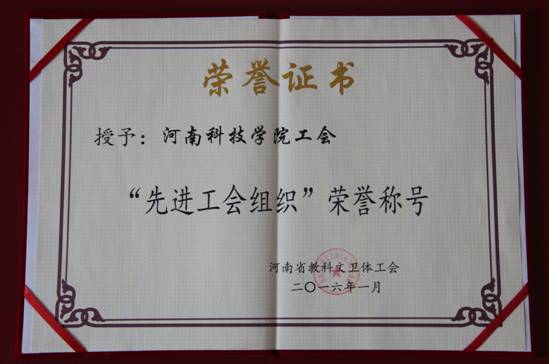 荣誉证书
授予：河南科技学院工会
“先进工会组织”荣誉称号
河南省教科文卫体工会
二〇一六年一月